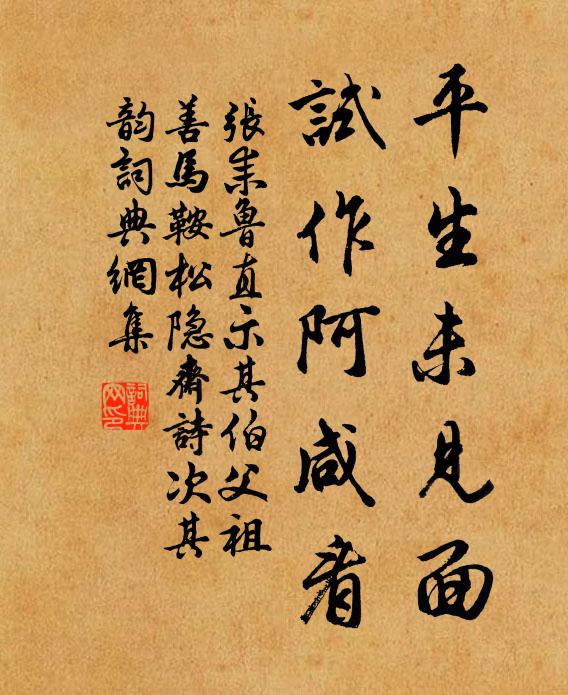 平生未見面
試作阿咸看
張耒魯直示其伯父祖
善馬鞍松隐齋詩次其
韵詞典網集
詞典网印